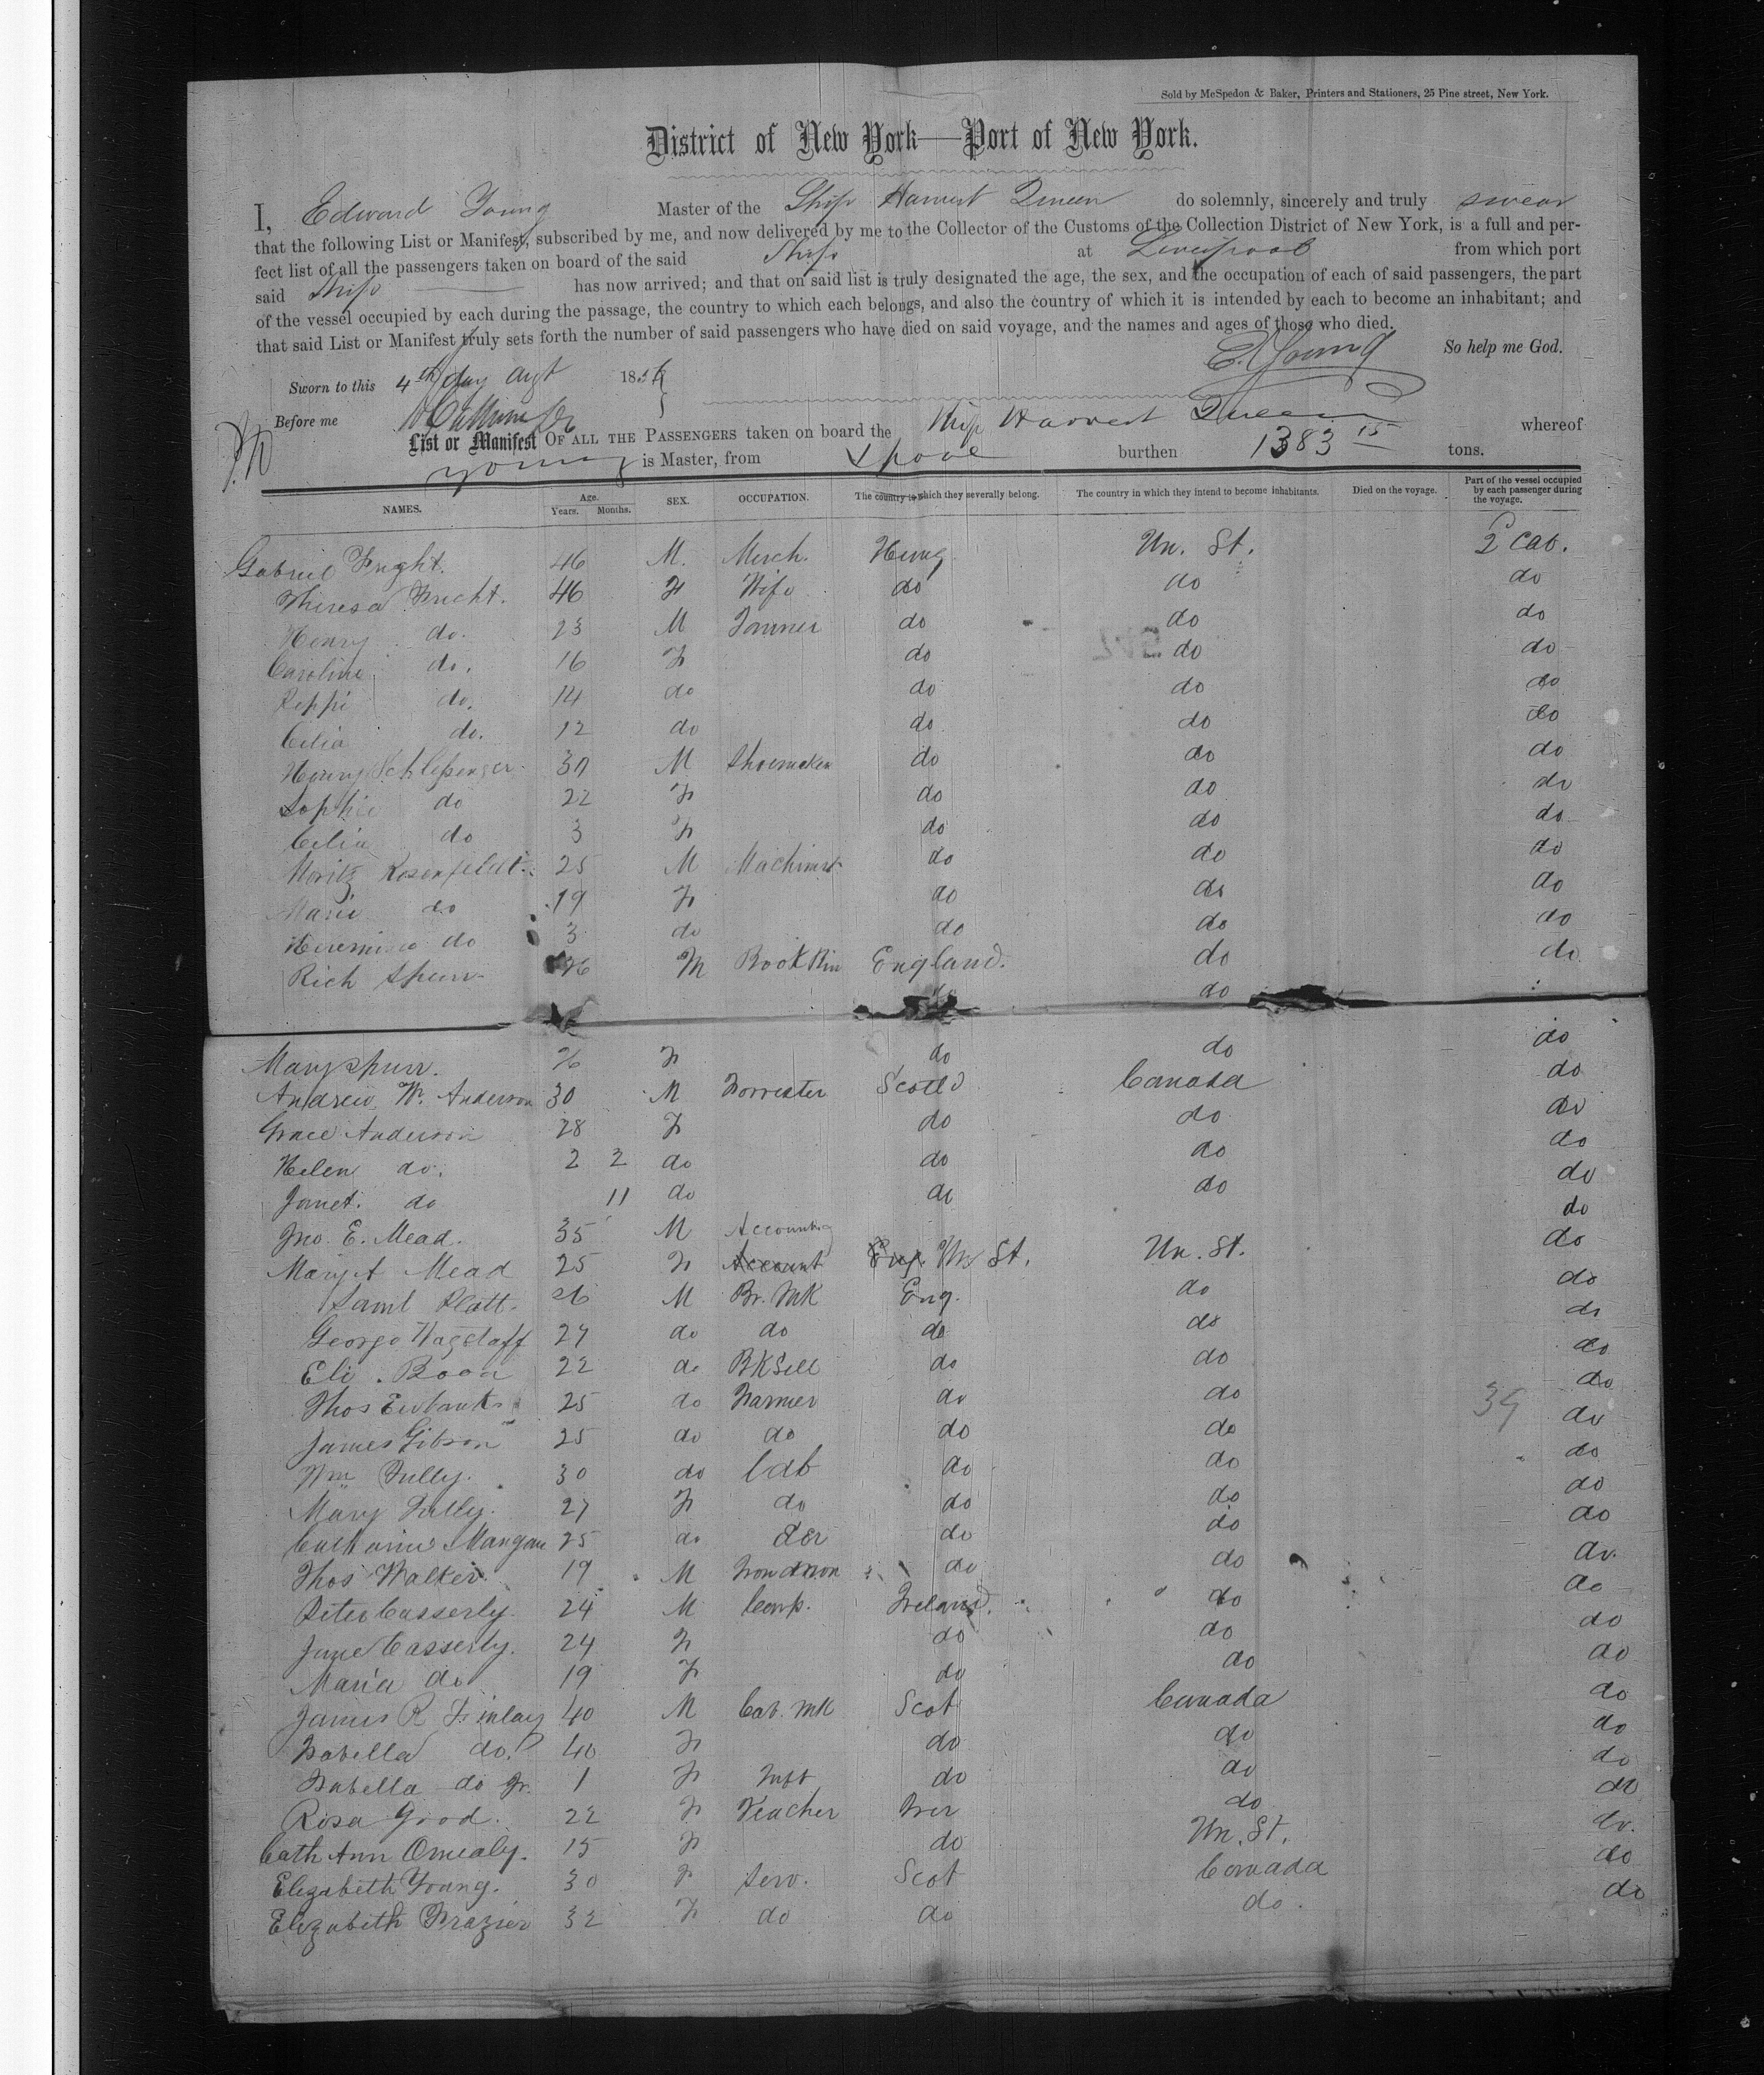 Sold by McSpedon & Baker, Printers and Stationers, 25 Pine street, New York.
District of New York—Port of New York.
I, Edward Young Master of the Ship Harvest Queen do solemnly, sincerely and truly swear
that the following List or Manifest, subscribed by me, and now delivered by me to the Collector of the Customs of the Collection District of New York, is a full and per-
fect list of all the passengers taken on board of the said Ship at Liverpool from which port
said Ship has now arrived; and that on said list is truly designated the age, the sex, and the occupation of each of said passengers, the part
of the vessel occupied by each during the passage, the country to which each belongs, and also the country of which it is intended by each to become an inhabitant; and
that said List or Manifest truly sets forth the number of said passengers who have died on said voyage, and the names and ages of those who died.
E. Young So help me God.
Sworn to this 4th day Augt 185
Before me
List or Manifest OF ALL THE PASSENGERS taken on board the Ship Harvest Queen whereof
Young is Master, from Lpool burthen 1383 15 tons.
NAMES. Age. Years. Months. SEX. OCCUPATION. The country to which they severally belong. The country in which they intend to become inhabitants. Died on the voyage. Part of the vessel occupied by each passenger during the voyage.
Gabriel 46 M. Merch. Hung Un. St. 2 Cab.
Theresa Frucht. 46 F Wife do do do
Henry do. 23 M do do do
Caroline do. 16 F do do do
Peppi do. 14 do do do do
Celia do. 12 do do do do
Henry Schlessenger 30 M Shoemaker do do do
Sophie do 22 F do do do
Celia do 3 F do do do
Moritz Rosenfeldt 25 M Machinist do do do
Marie do 19 F do do do
do 3 do do do do
Rich Spurr M England. do do
do
Mary Spurr. F do do do
Andrew W. Anderson 30 M Forrester Scotld Canada do
Grace Anderson 28 F do do do
Helen do. 2 2 do do do do
Janet. do 11 do do do do
Jno. E. Mead. 35 M do
Mary A Mead 25 F Account Eng. Un St. Un. St. do
Saml Platt. 26 M Br. MK Eng. do do
George Wagstaff 27 do do do do do
Eli Boon 22 do BKSell do do do
Thos Ewbank 25 do Farmer do do do
39
James Gibson 25 do do do do do
Wm Tully. 30 do Lab do do do
Mary Tully. 27 F do do do do
Catharine Mangan 25 do do do do
Thos Walker 19 M do do do
Peter Casserly. 24 M Carp. Ireland. do do
Jane Casserly. 24 F do do do
Maria do 19 F do do do
James R Finlay 40 M Cab. MK Scot Canada do
Isabella do. 40 F do do do
Isabella do Jr. 1 F Inft do do do
Rosa Good. 22 F Teacher Irer do do
Cath Ann Omealy. 15 F do Un. St. do
Elizabeth Young. 30 F Serv. Scot Canada do
Elizabeth Frazier 32 F do do do. do